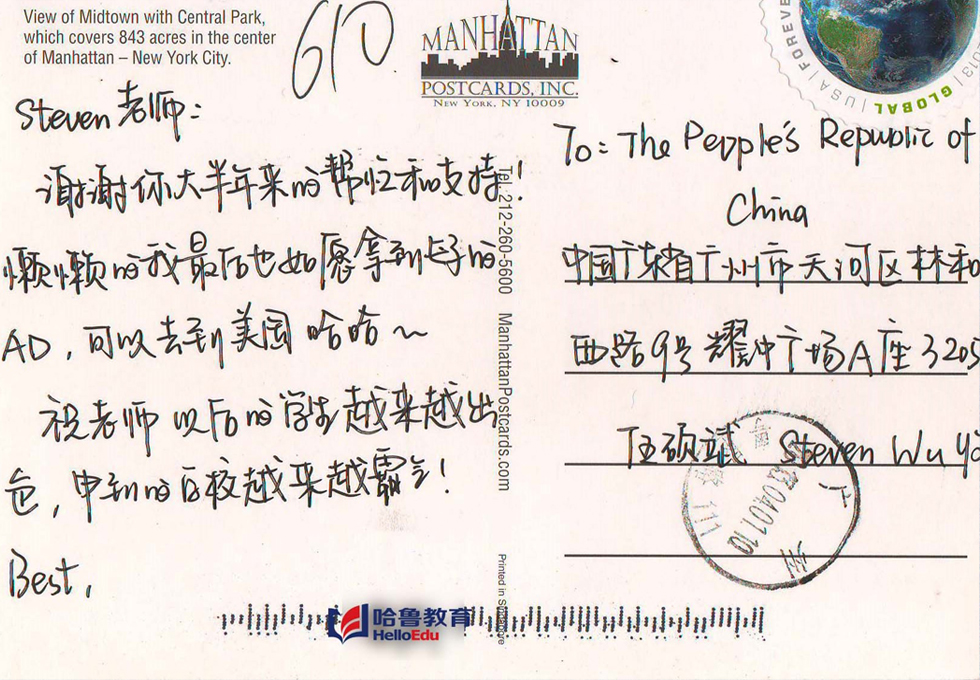 View of Midtown with Central Park,
which covers 843 acres in the center
of Manhattan – New York City.
610
MANHATTAN
POSTCARDS, INC.
NEW YORK, NY 10009
FOREVER
2013
GLOBAL | USA
Steven老师:
谢谢你大半年来的帮忙和支持!
懒懒的我最后也如愿拿到卡的
AD,可以去到美国 哈哈~
祝老师以后的学生越来越出
色,申到的名校越来越霸气!
Best,
Tel: 212-260-5600 ManhattanPostcards.com
Printed in
To: The People's Republic of
China
中国广东省广州市天河区林和
西路9号耀中广场A座3205
伍硕斌 Steven Wu
广
州
哈鲁教育
HelloEdu